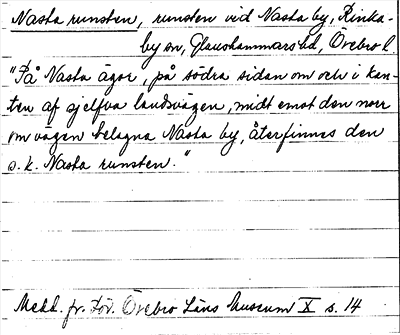 Nasta runsten, runsten vid Nasta by, Rinka-
by sn, Glanshammars hd, Örebro l.
"På Nasta ägor, på södra sidan om och i kan-
ten af sjelfva landsvägen, midt emot den norr
om vägen belägna Nasta by, återfinnes den
s.k. Nasta runsten."
Medd. fr. För. Örebro Läns Museum X s. 14